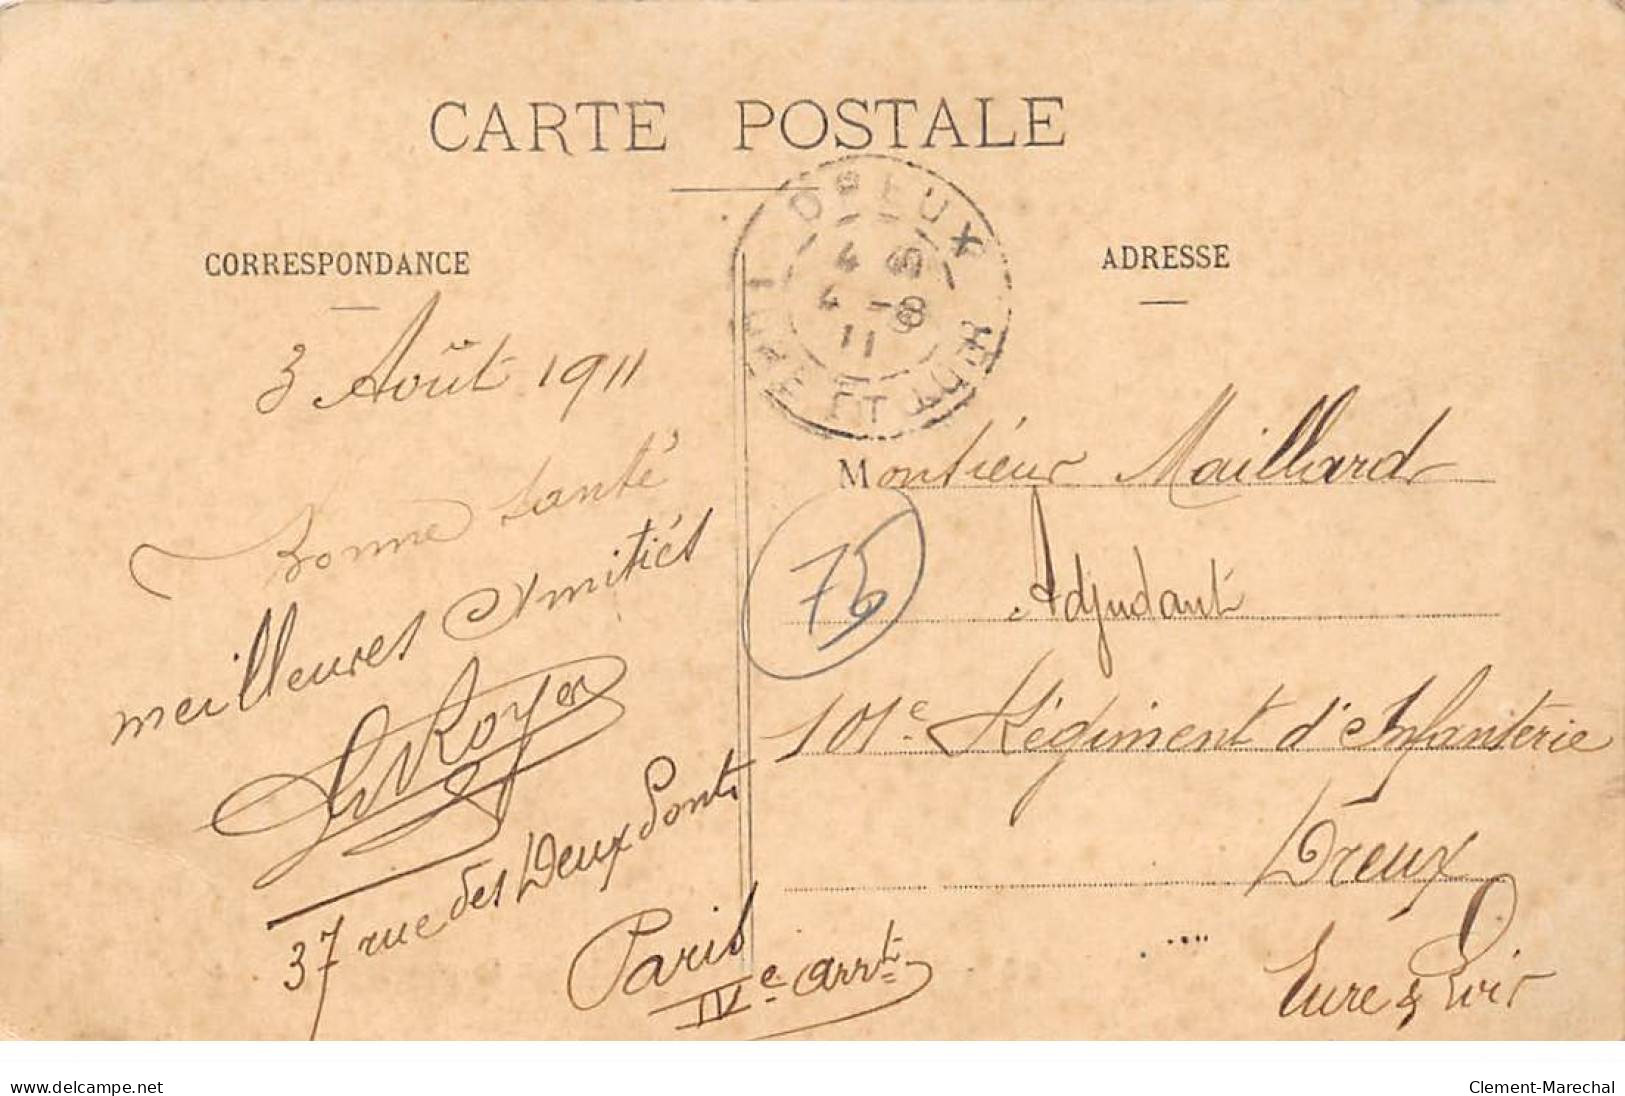 CARTE POSTALE
CORRESPONDANCE
ADRESSE
DREUX
EURE ET LOIR
4 S
4 -8
11
3 Août 1911
Bonne santé
meilleures Amitiés
LeRoyer
37 rue des Deux Ponts
Paris
IVe arrt
Monsieur Maillard
Adjudant
101e Régiment d'Infanterie
Dreux
Eure & Loir
75
www.delcampe.net
Clement-Marechal